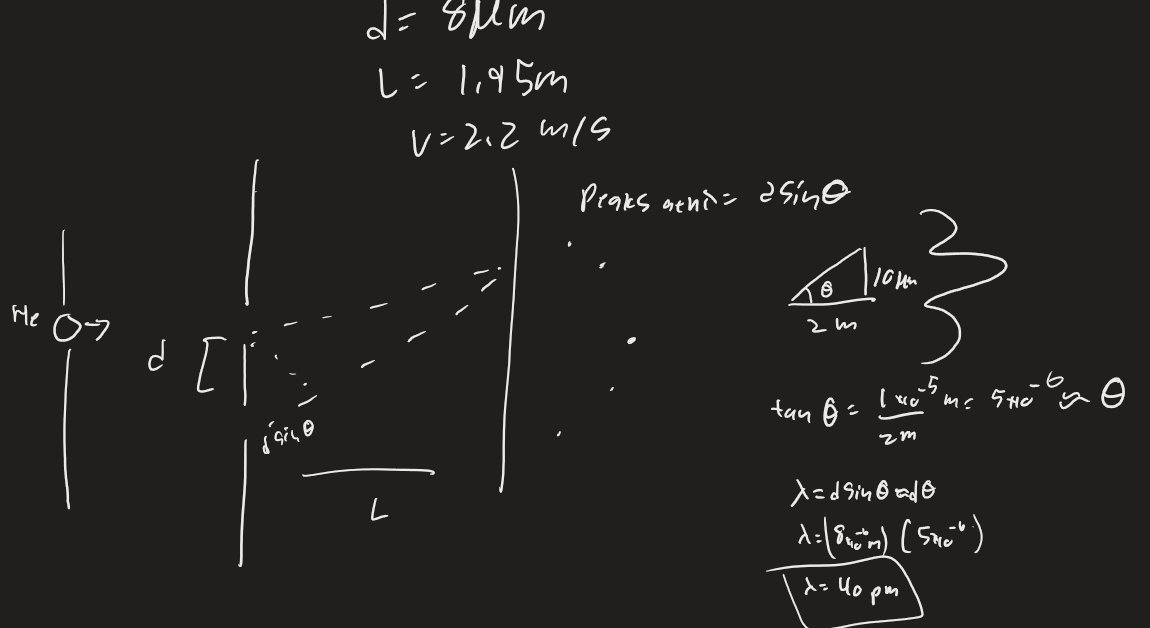 d = 8μm
L = 1.95m
v = 2.2 m/s
Peaks at nλ = dsinθ
He
d
dsinθ
L
θ
10 μm
2 m
tan θ = 1x10^-5 m / 2m = 5x10^-6 ≈ θ
λ = dsinθ ≈ dθ
λ = (8x10^-6 m) (5x10^-6)
λ = 40 pm